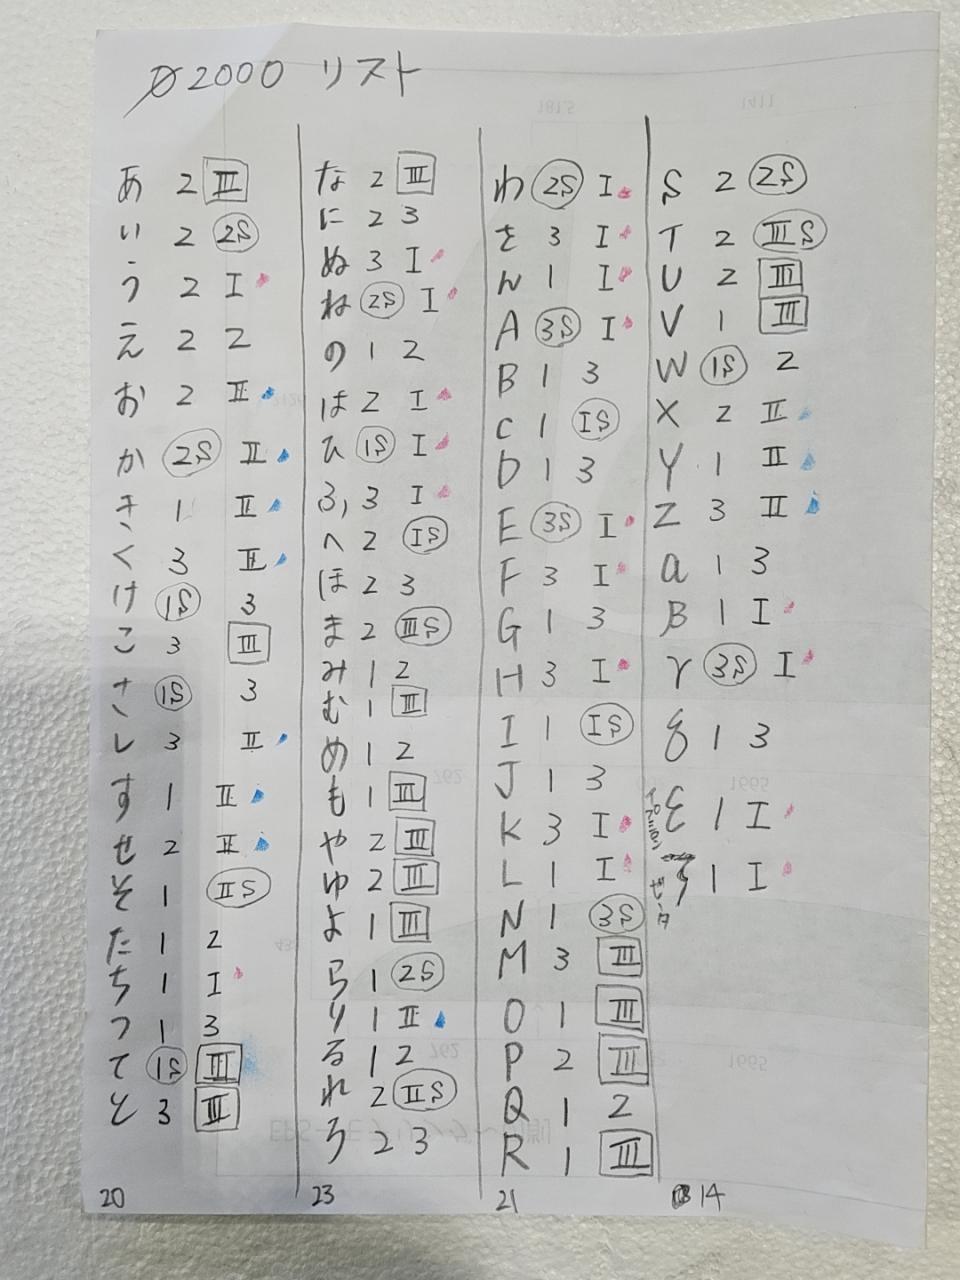 φ2000 リスト
あ 2 Ⅲ
い 2 2S
う 2 I
え 2 2
お 2 Ⅱ
か 2S Ⅱ
き 1 Ⅱ
く 3 Ⅱ
け 1S 3
こ 3 Ⅲ
さ 1S 3
し 3 Ⅱ
す 1 Ⅱ
せ 2 Ⅱ
そ 1 ⅡS
た 1 2
ち 1 I
つ 1 3
て 1S Ⅲ
と 3 Ⅲ
20
な 2 Ⅲ
に 2 3
ぬ 3 I
ね 2S I
の 1 2
は 2 I
ひ 1S I
ふ 3 I
へ 2 IS
ほ 2 3
ま 2 ⅢS
み 1 2
む 1 Ⅲ
め 1 2
も 1 Ⅲ
や 2 Ⅲ
ゆ 2 Ⅲ
よ 1 Ⅲ
ら 1 2S
り 1 Ⅱ
る 1 2
れ 2 ⅡS
ろ 2 3
23
わ 2S I
を 3 I
ん 1 I
A 3S I
B 1 3
C 1 IS
D 1 3
E 3S I
F 3 I
G 1 3
H 3 I
I 1 IS
J 1 3
K 3 I
L 1 I
N 1 3S
M 3 Ⅲ
O 1 Ⅲ
P 2 Ⅲ
Q 1 2
R 1 Ⅲ
21
S 2 2S
T 2 ⅢS
U 2 Ⅲ
V 1 Ⅲ
W 1S 2
X 2 Ⅱ
Y 1 Ⅱ
Z 3 Ⅱ
α 1 3
β 1 I
γ 3S I
δ 1 3
ε 1 I
ゼータ
ζ 1 I
14